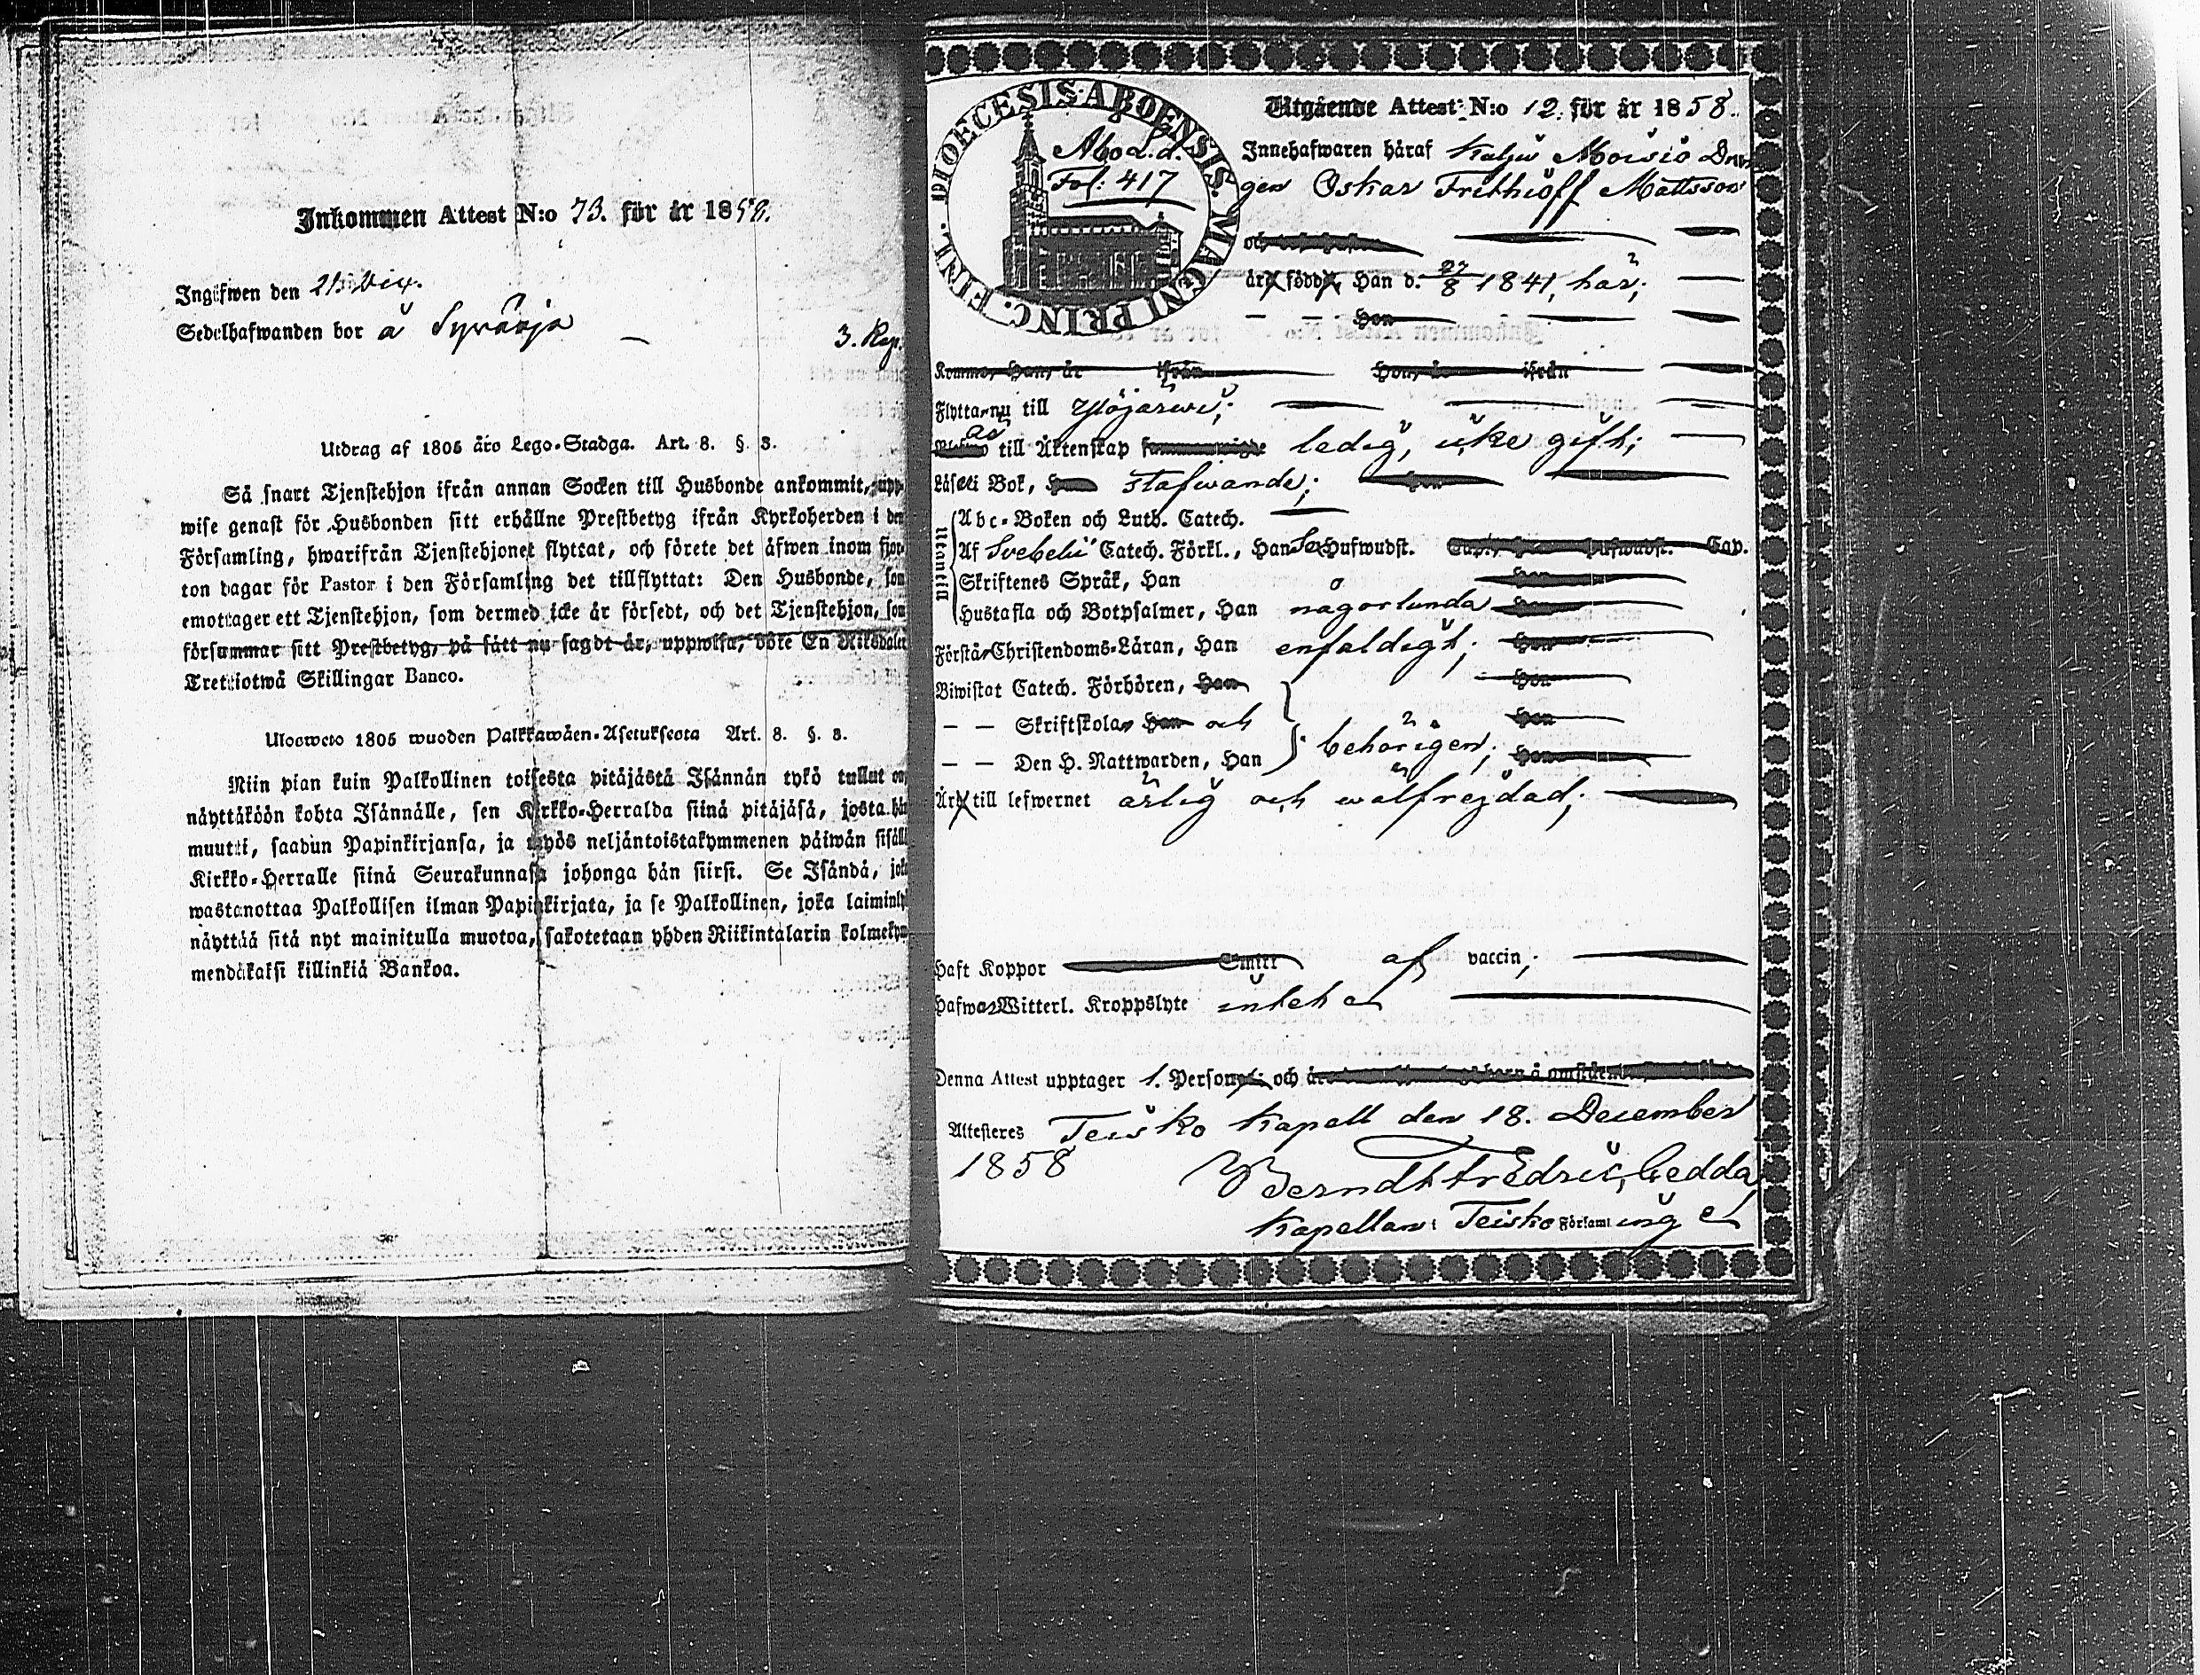 Inkommen Attest N:o 73. för år 1858.
Ingifwen den
Sedelhafwanden bor å Syväoja
3. Rep.
Utdrag af 1805 års Lego-Stadga. Art. 8. §. 3.
Så snart Tjenstehjon ifrån annan Socken till Husbonde ankommit, upp-
wise genast för Husbonden sitt erhållne Prestbetyg ifrån Kyrkoherden i den
Församling, hwarifrån Tjenstehjonet flyttat, och förete det äfwen inom fjor-
ton dagar för Pastor i den Församling det tillflyttat: Den Husbonde, som
emottager ett Tjenstehjon, som dermed icke är försedt, och det Tjenstehjon, som
försummar sitt Prestbetyg, på sätt nu sagdt är, uppwisa, böte En Riksdaler
Trettiotwå Skillingar Banco.
Ulosweto 1805 wuoden Palkkawäen-Asetuksesta Art. 8. §. 3.
Niin pian kuin Palkollinen toisesta pitäjästä Isännän tykö tullut on,
näyttäköön kohta Isännälle, sen Kirkko-Herralda siinä pitäjäsä, josta hän
muutti, saadun Papinkirjansa, ja myös neljäntoistakymmenen päiwän sisällä
Kirkko-Herralle siinä Seurakunnasa johonga hän siirsi. Se Isändä, joka
wastanottaa Palkollisen ilman Papinkirjata, ja se Palkollinen, joka laiminly
näyttää sitä nyt mainitulla muotoa, sakotetaan yhden Riikintalarin kolmekym-
mendäkaksi killinkiä Bankoa.
DIOECESIS ABOENSIS MAGNI PRINC. FINL.
Abo L.d.
Fol: 417
Utgående Attest N:o 12. för år 1858.
Innehafwaren häraf Kalju Moisio Drän
gen Oskar Frithioff Mattsson
och
är född, Han d. 27/8 1841, har;
Hon
Komma, Han, är ifrån Hon, är ifrån
Flyttar nu till Ylöjärwi;
är till Äktenskap ledig, icke gift;
Läser i Bok, Han stafwande; Hon
Utantill
Abc-Boken och Luth. Catech.
Af Svebelii Catech. Förkl., Han Sex Hufwudst. Cap.
Skriftenes Språk, Han Hon
Hustafla och Botpsalmer, Han någorlunda Hon
Förstår Christendoms-Läran, Han enfaldigt; Hon
Biwistat Catech. Förhören, Han Hon
— — Skriftskolan Han och Hon
— — Den H. Nattwarden, Han behörigen; Hon
Är till lefwernet ärlig och wälfrejdad;
Haft Koppor Smitt af vaccin;
Hafwar Witterl. Kroppslyte intet
Denna Attest upptager 1. Person och
Attesteres Teisko Kapell den 18. December
1858
Berndt Fredric Gedda
Kapellan i Teisko Församling